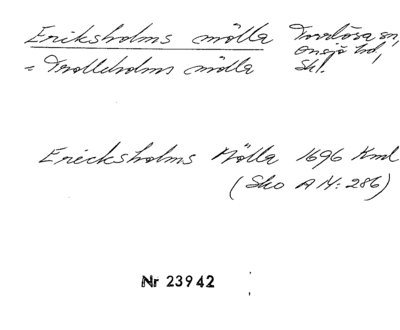 Eriksholms mölla Torrlösa sn,
Onsjö hd,
= Trolleholms mölla Sk.
Ericksholms Mölla 1696 Kml
(Sko A IV: 286)
Nr 23942